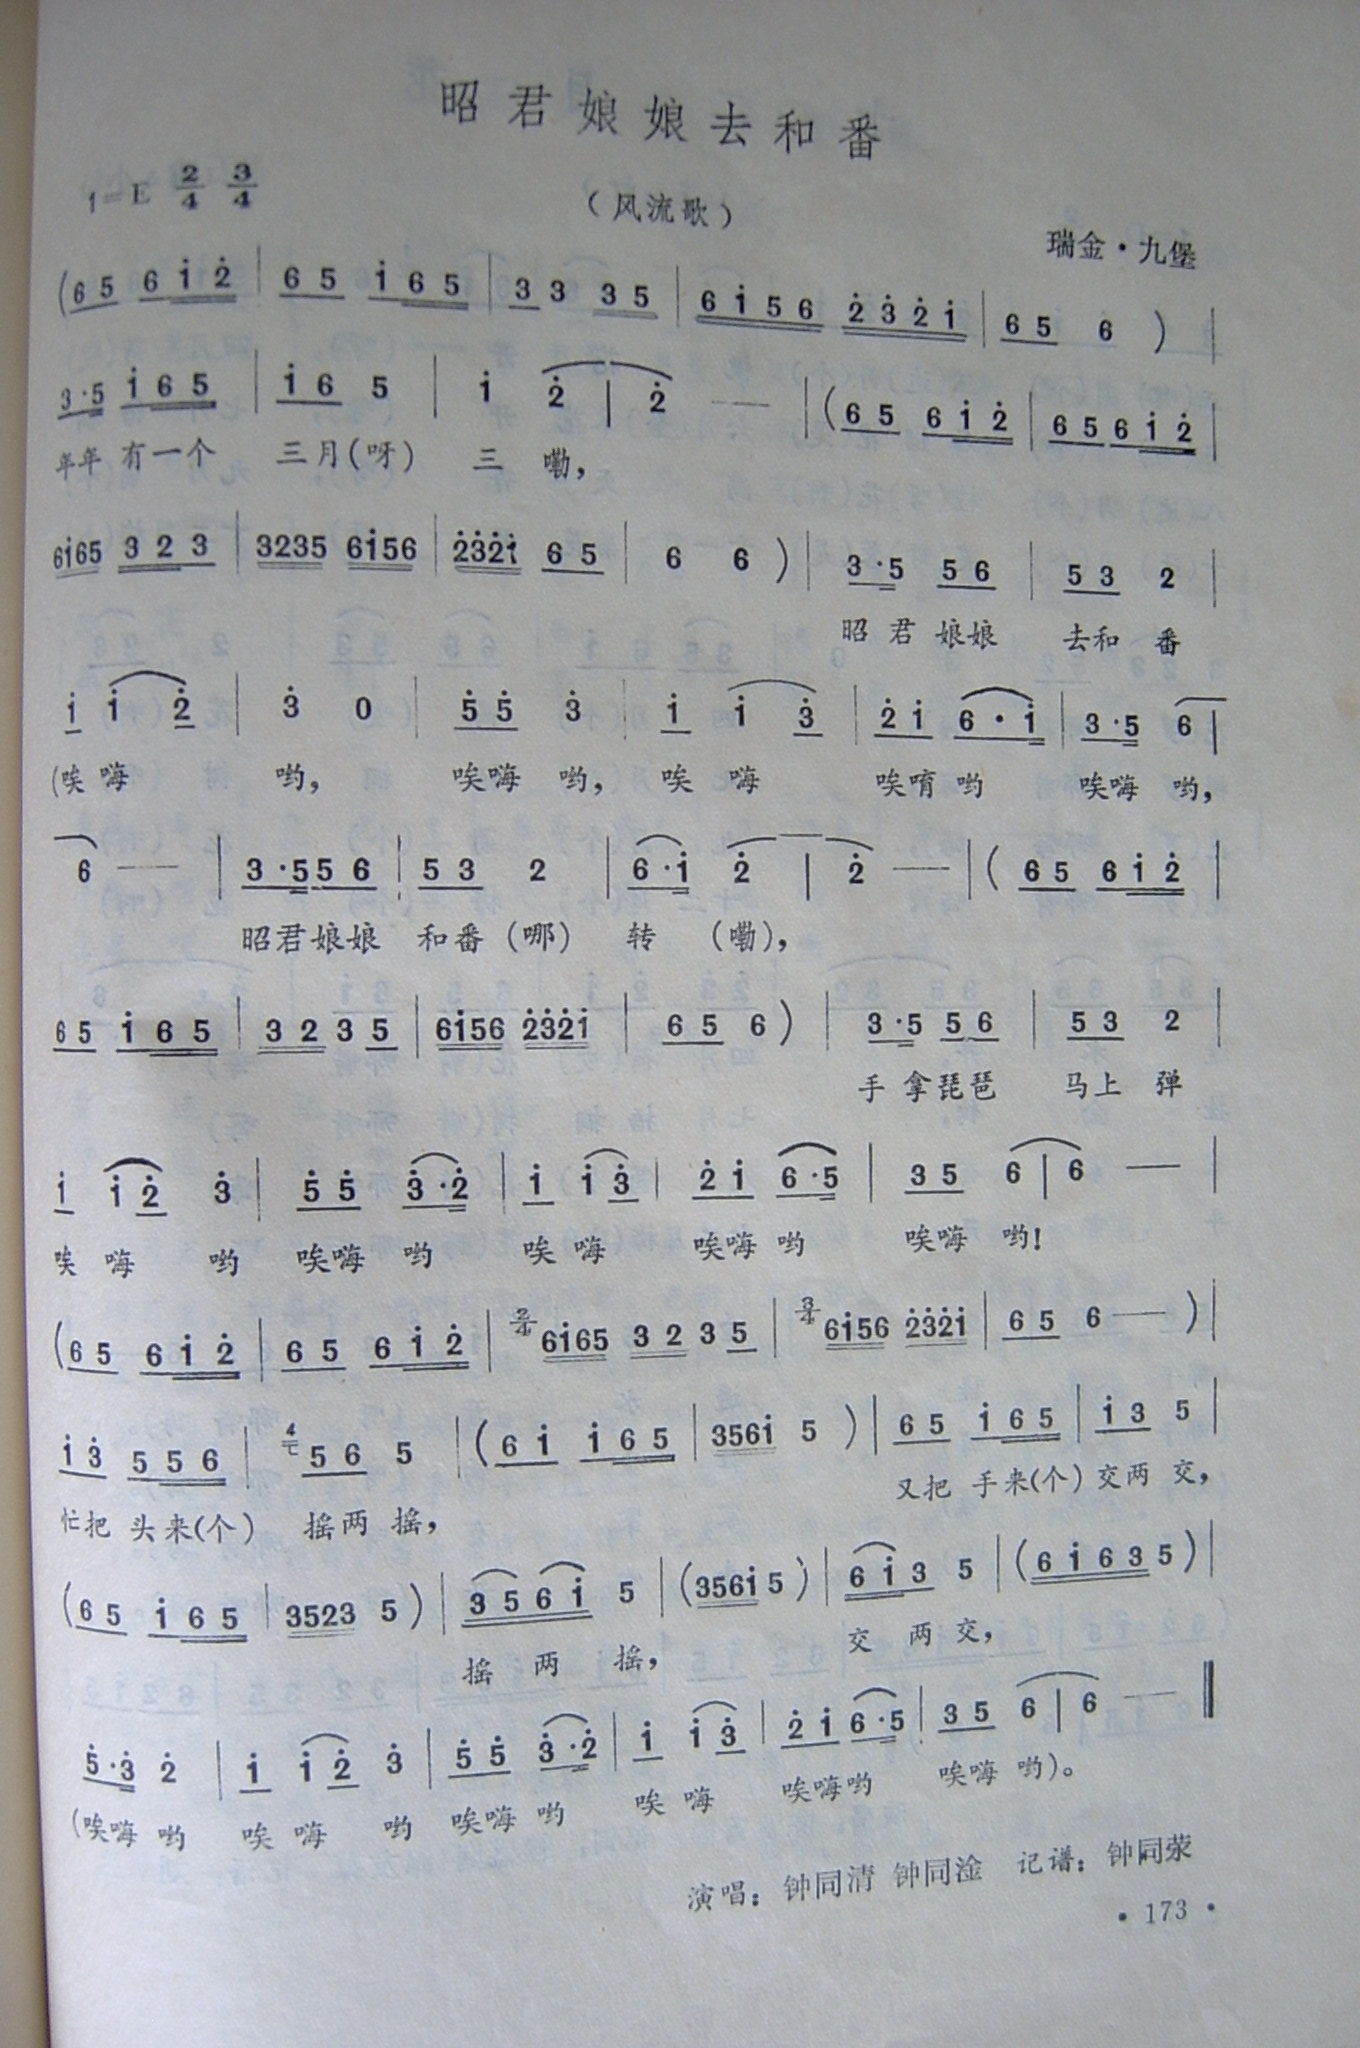 昭君娘娘去和番
1=E 2/4 3/4
（风流歌）
瑞金·九堡
(65 6i̇2̇ | 65 i̇65 | 33 35 | 6i̇56 2̇3̇2̇i̇ | 65 6 ) |
3·5 i̇65 | i̇6 5 | i̇ 2̇ | 2̇ — | (65 6i̇2̇ | 65 6i̇2̇ |
年年 有一个 三月(呀) 三 嘞，
6i̇65 323 | 3235 6i̇56 | 2̇3̇2̇i̇ 65 | 6 6 ) | 3·5 56 | 53 2 |
昭君 娘娘 去和 番
i̇ i̇ 2̇ | 3̇ 0 | 5̇5̇ 3̇ | i̇ i̇ 3̇ | 2̇i̇ 6·i̇ | 3·5 6 |
(唉 嗨 哟， 唉嗨 哟， 唉 嗨 唉唷 哟 唉嗨 哟，
6 — | 3·5 56 | 53 2 | 6·i̇ 2̇ | 2̇ — | ( 65 6i̇2̇ |
昭君娘娘 和番（哪） 转 （嘞），
65 i̇65 | 32 35 | 6i̇56 2̇3̇2̇i̇ | 65 6 ) | 3·5 56 | 53 2 |
手拿琵琶 马上 弹
i̇ i̇2̇ 3̇ | 5̇5̇ 3̇·2̇ | i̇ i̇3̇ | 2̇i̇ 6·5 | 35 6 | 6 — |
唉 嗨 哟 唉嗨 哟 唉 嗨 唉嗨 哟 唉嗨 哟!
(65 6i̇2̇ | 65 6i̇2̇ | 2/4 6i̇65 32 35 | 3/4 6i̇56 2̇3̇2̇i̇ | 65 6 — ) |
i̇3̇ 556 | 56 5 | (6i̇ i̇65 | 356i̇ 5 ) | 65 i̇65 | i̇3 5 |
忙把 头来(个) 摇两 摇， 又把 手来(个) 交两 交，
(65 i̇65 | 3523 5 ) | 35 6i̇ 5 | (356i̇ 5 ) | 6i̇3 5 | (6i̇63 5 ) |
摇 两 摇， 交 两 交，
5̇·3̇ 2̇ | i̇ i̇2̇ 3̇ | 5̇5̇ 3̇·2̇ | i̇ i̇3̇ | 2̇i̇ 6·5 | 35 6 | 6 — ‖
(唉嗨 哟 唉 嗨 哟 唉嗨 哟 唉 嗨 唉嗨哟 唉嗨 哟)。
演唱：钟同清 钟同淦 记谱：钟同荥
·173·